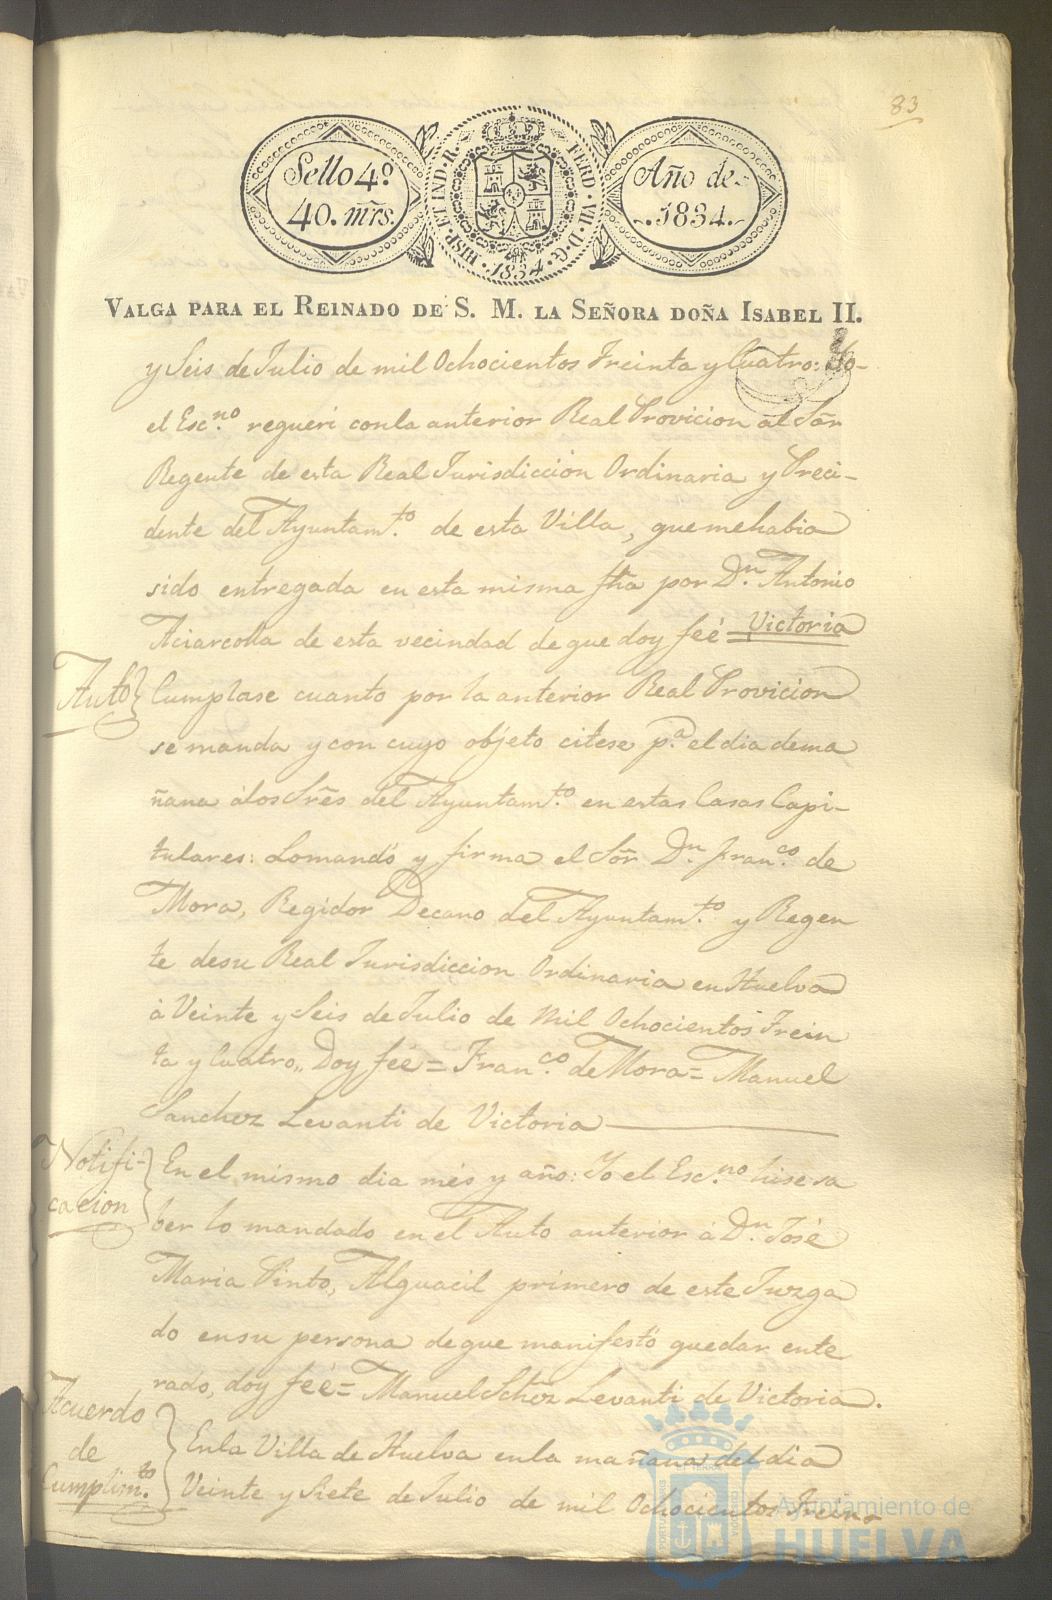 83
Sello 4º
40. mrs.
HISP. ET IND. R. FERD. VII. D. G. 1834.
Año de
1834.
VALGA PARA EL REINADO DE S. M. LA SEÑORA DOÑA ISABEL II.
y Seis de Julio de mil Ochocientos Treinta y Cuatro: Yo
el Escno. requeri conla anterior Real Provicion al Sor
Regente de esta Real Jurisdicción Ordinaria y Preci-
dente del Ayuntamto. de esta Villa, que me habia
sido entregada en esta misma fha por Dn. Antonio
de esta vecindad de que doy feé = Victoria
Auto} Cumplase cuanto por la anterior Real Provicion
se manda y con cuyo objeto citese pa. el dia de ma
ñana álos Sres del Ayuntamto. en estas Casas Capi-
tulares: Lo mandó y firma el Sor. Dn. Franco. de
Mora, Regidor Decano del Ayuntamto. y Regen
te desu Real Jurisdiccion Ordinaria en Huelva
á Veinte y Seis de Julio de Mil Ochocientos Trein
ta y Cuatro,, Doy feé = Franco. de Mora = Manuel
Sanchez Levanti de Victoria
Notifi-
cacion} En el mismo dia més y año: Yo el Escno. hise sa
ber lo mandado en el Auto anterior á Dn. José
Maria Pinto, Alguacil primero de este Juzga
do ensu persona de que manifestó quedar ente
rado, doy feé = Manuel Schez Levanti de Victoria.
Acuerdo
de
Cumplimto.} Enla Villa de Huelva enla mañana del dia
Veinte y Siete de Julio de mil Ochocientos Trein
Ayuntamiento de
HUELVA